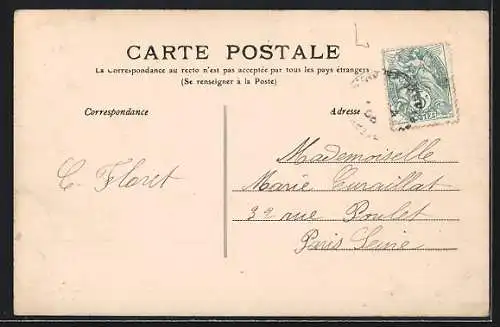 CARTE POSTALE
La Correspondance au recto n'est pas acceptée par tous les pays étrangers
(Se renseigner à la Poste)
Correspondance
Adresse
C. Floret
Mademoiselle
Marie Curaillat
39 rue Poulet
Paris Seine
5
POSTES